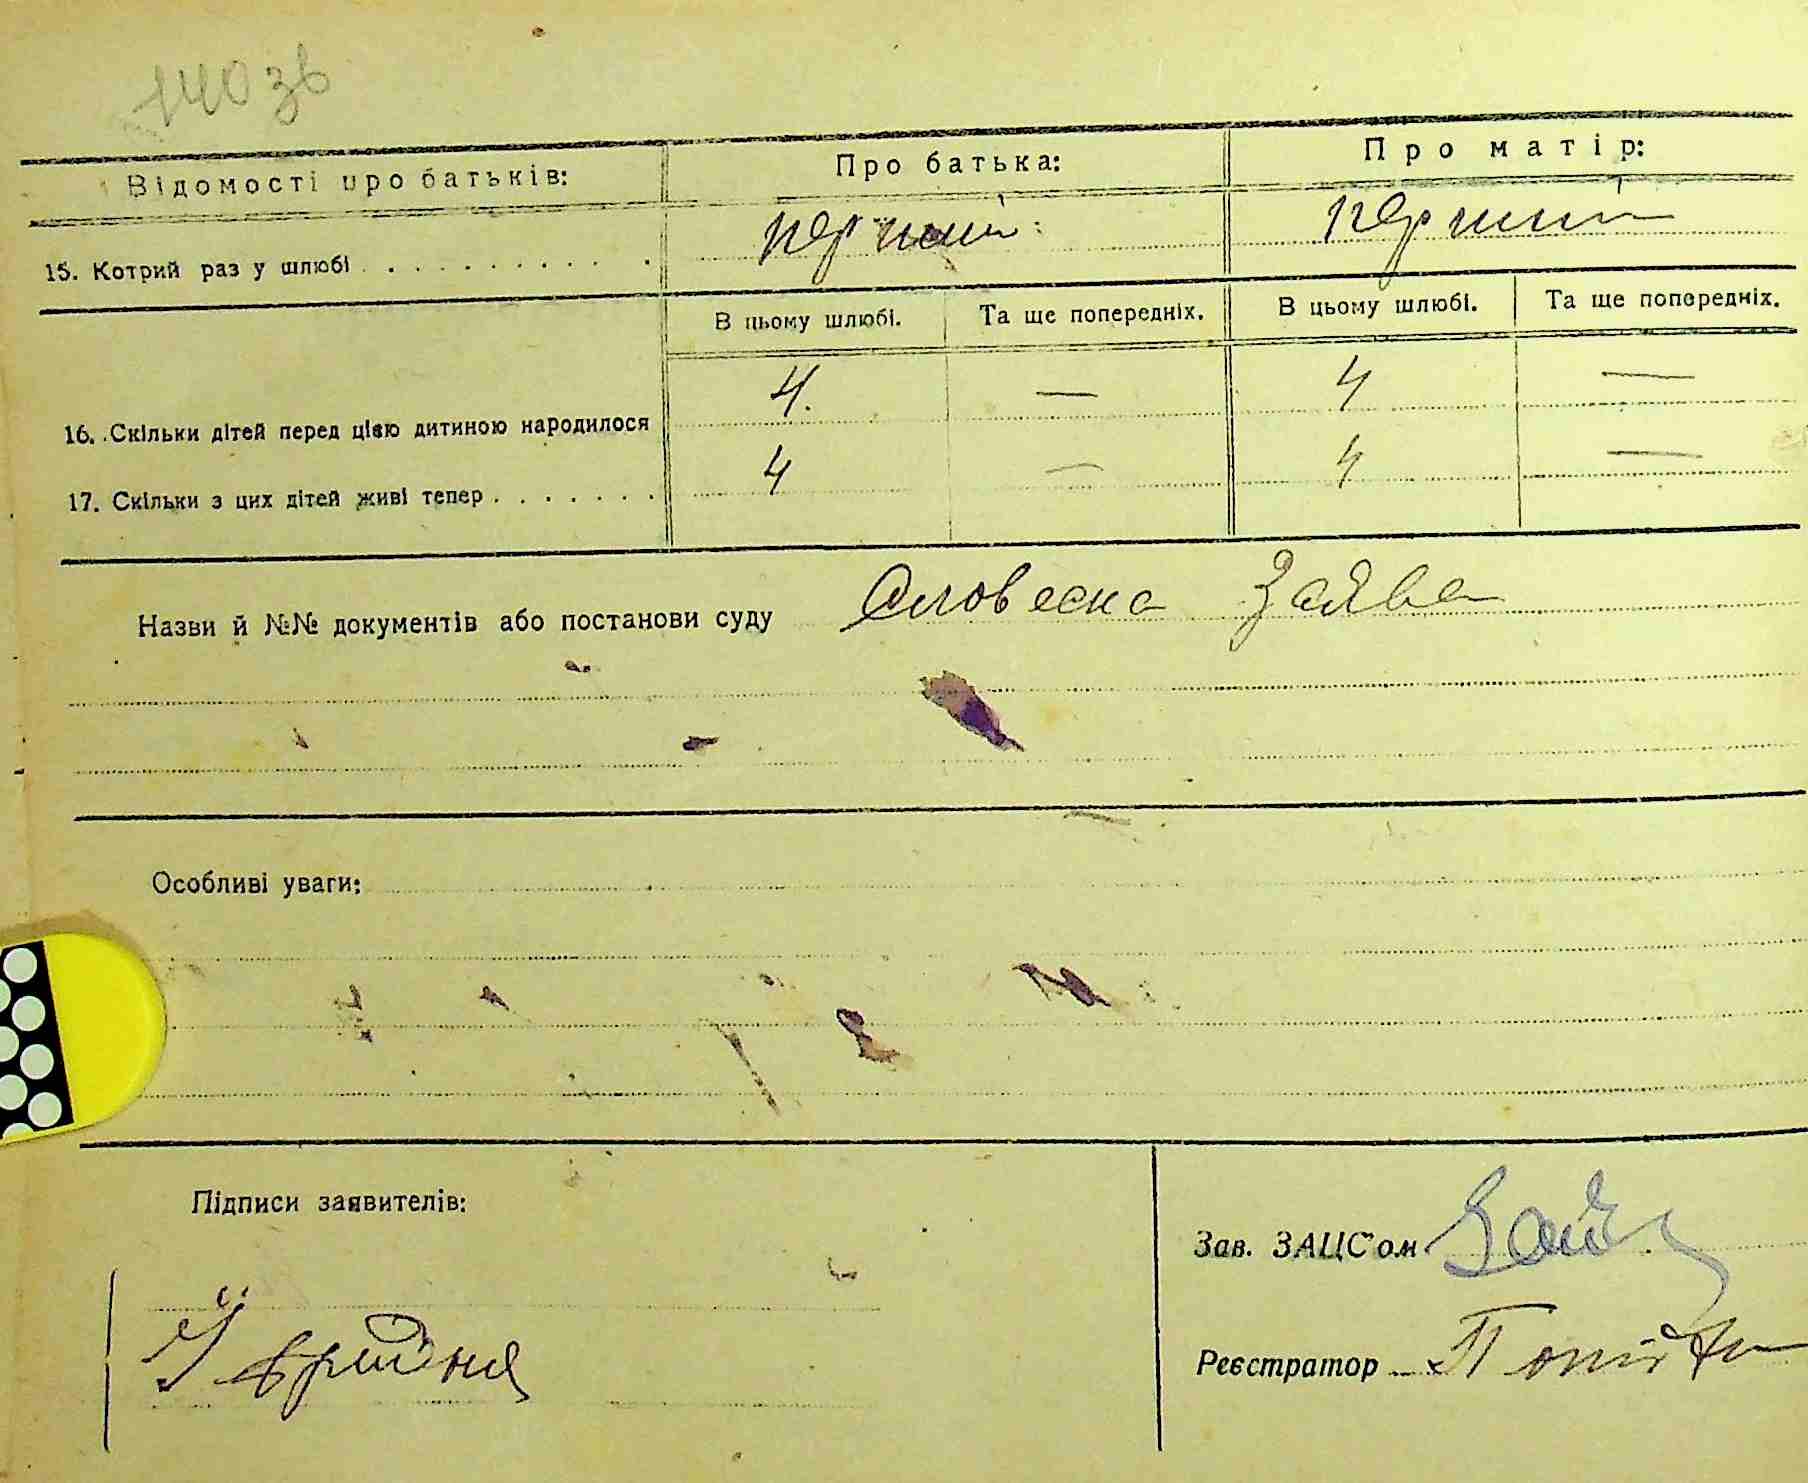 140 зв
Відомості про батьків: Про батька: Про матір:
15. Котрий раз у шлюбі . . . . . . . . . . . . перший перший
В цьому шлюбі. Та ще попередніх. В цьому шлюбі. Та ще попередніх.
16. Скільки дітей перед цією дитиною народилося 4. — 4 —
17. Скільки з цих дітей живі тепер . . . . . . . 4 — 4 —
Назви й №№ документів або постанови суду Словесна заява
Особливі уваги:
Підписи заявителів:
Зав. ЗАЦС'ом
Реєстратор